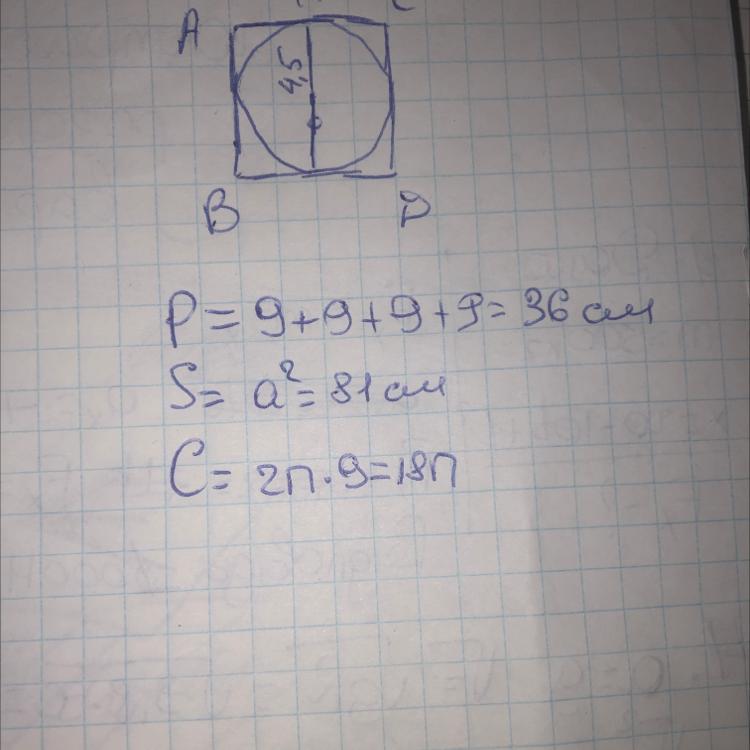 A
4,5
B
D
P = 9+9+9+9= 36 см
S= a²= 81 см
C= 2п·9=18п